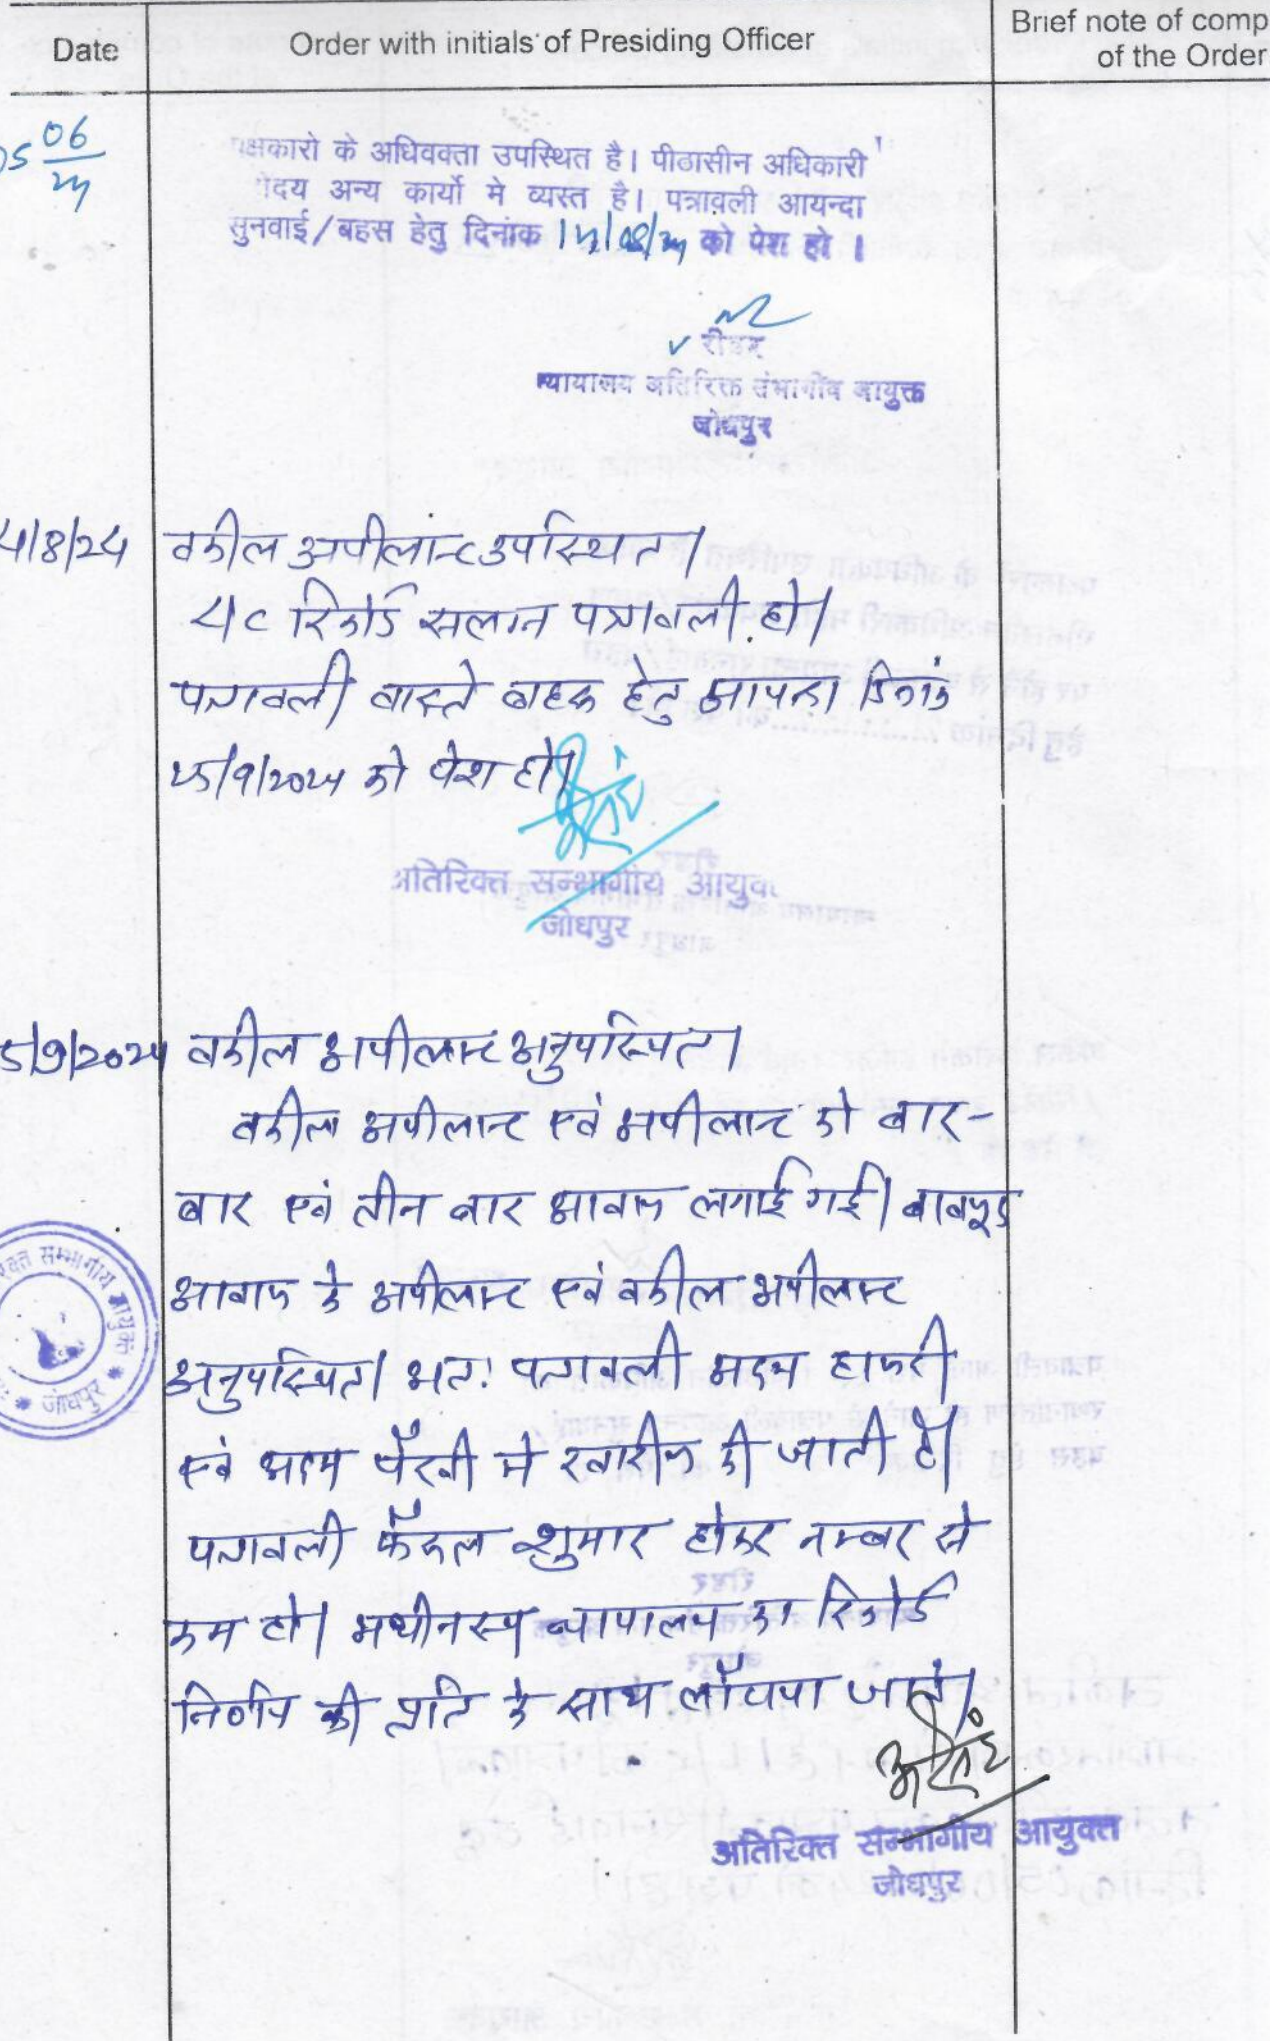 Date
Order with initials of Presiding Officer
Brief note of comp
of the Order
05 06
24
पक्षकारो के अधिवक्ता उपस्थित है। पीठासीन अधिकारी
ोदय अन्य कार्यो मे व्यस्त है। पत्रावली आयन्दा
सुनवाई/बहस हेतु दिनांक 14/08/24 को पेश हो ।
रीडर
न्यायालय अतिरिक्त संभागीय आयुक्त
जोधपुर
4/8/24
वकील अपीलान्ट उपस्थित।
LC रिकोर्ड सलग्न पत्रावली हो।
पत्रावली वास्ते बहस हेतु आयन्दा दिनांक
25/9/2024 को पेश हो।
अतिरिक्त सम्भागीय आयुक्त
जोधपुर
5/9/2024
वकील अपीलान्ट अनुपस्थित।
वकील अपीलान्ट एवं अपीलान्ट को बार-
बार एवं तीन बार आवाज लगाई गई। बावजूद
आवाज के अपीलान्ट एवं वकील अपीलान्ट
अनुपस्थित। अतः पत्रावली अदम हाजरी
एवं अदम पैरवी मे खारीज की जाती है।
पत्रावली फैसल शुमार होकर नम्बर से
कम हो। अधीनस्थ न्यायालय का रिकोर्ड
निर्णय की प्रति के साथ लौटाया जावे।
अतिरिक्त सम्भागीय आयुक्त
जोधपुर
रिक्त सम्भागीय आयुक्त * जोधपुर *